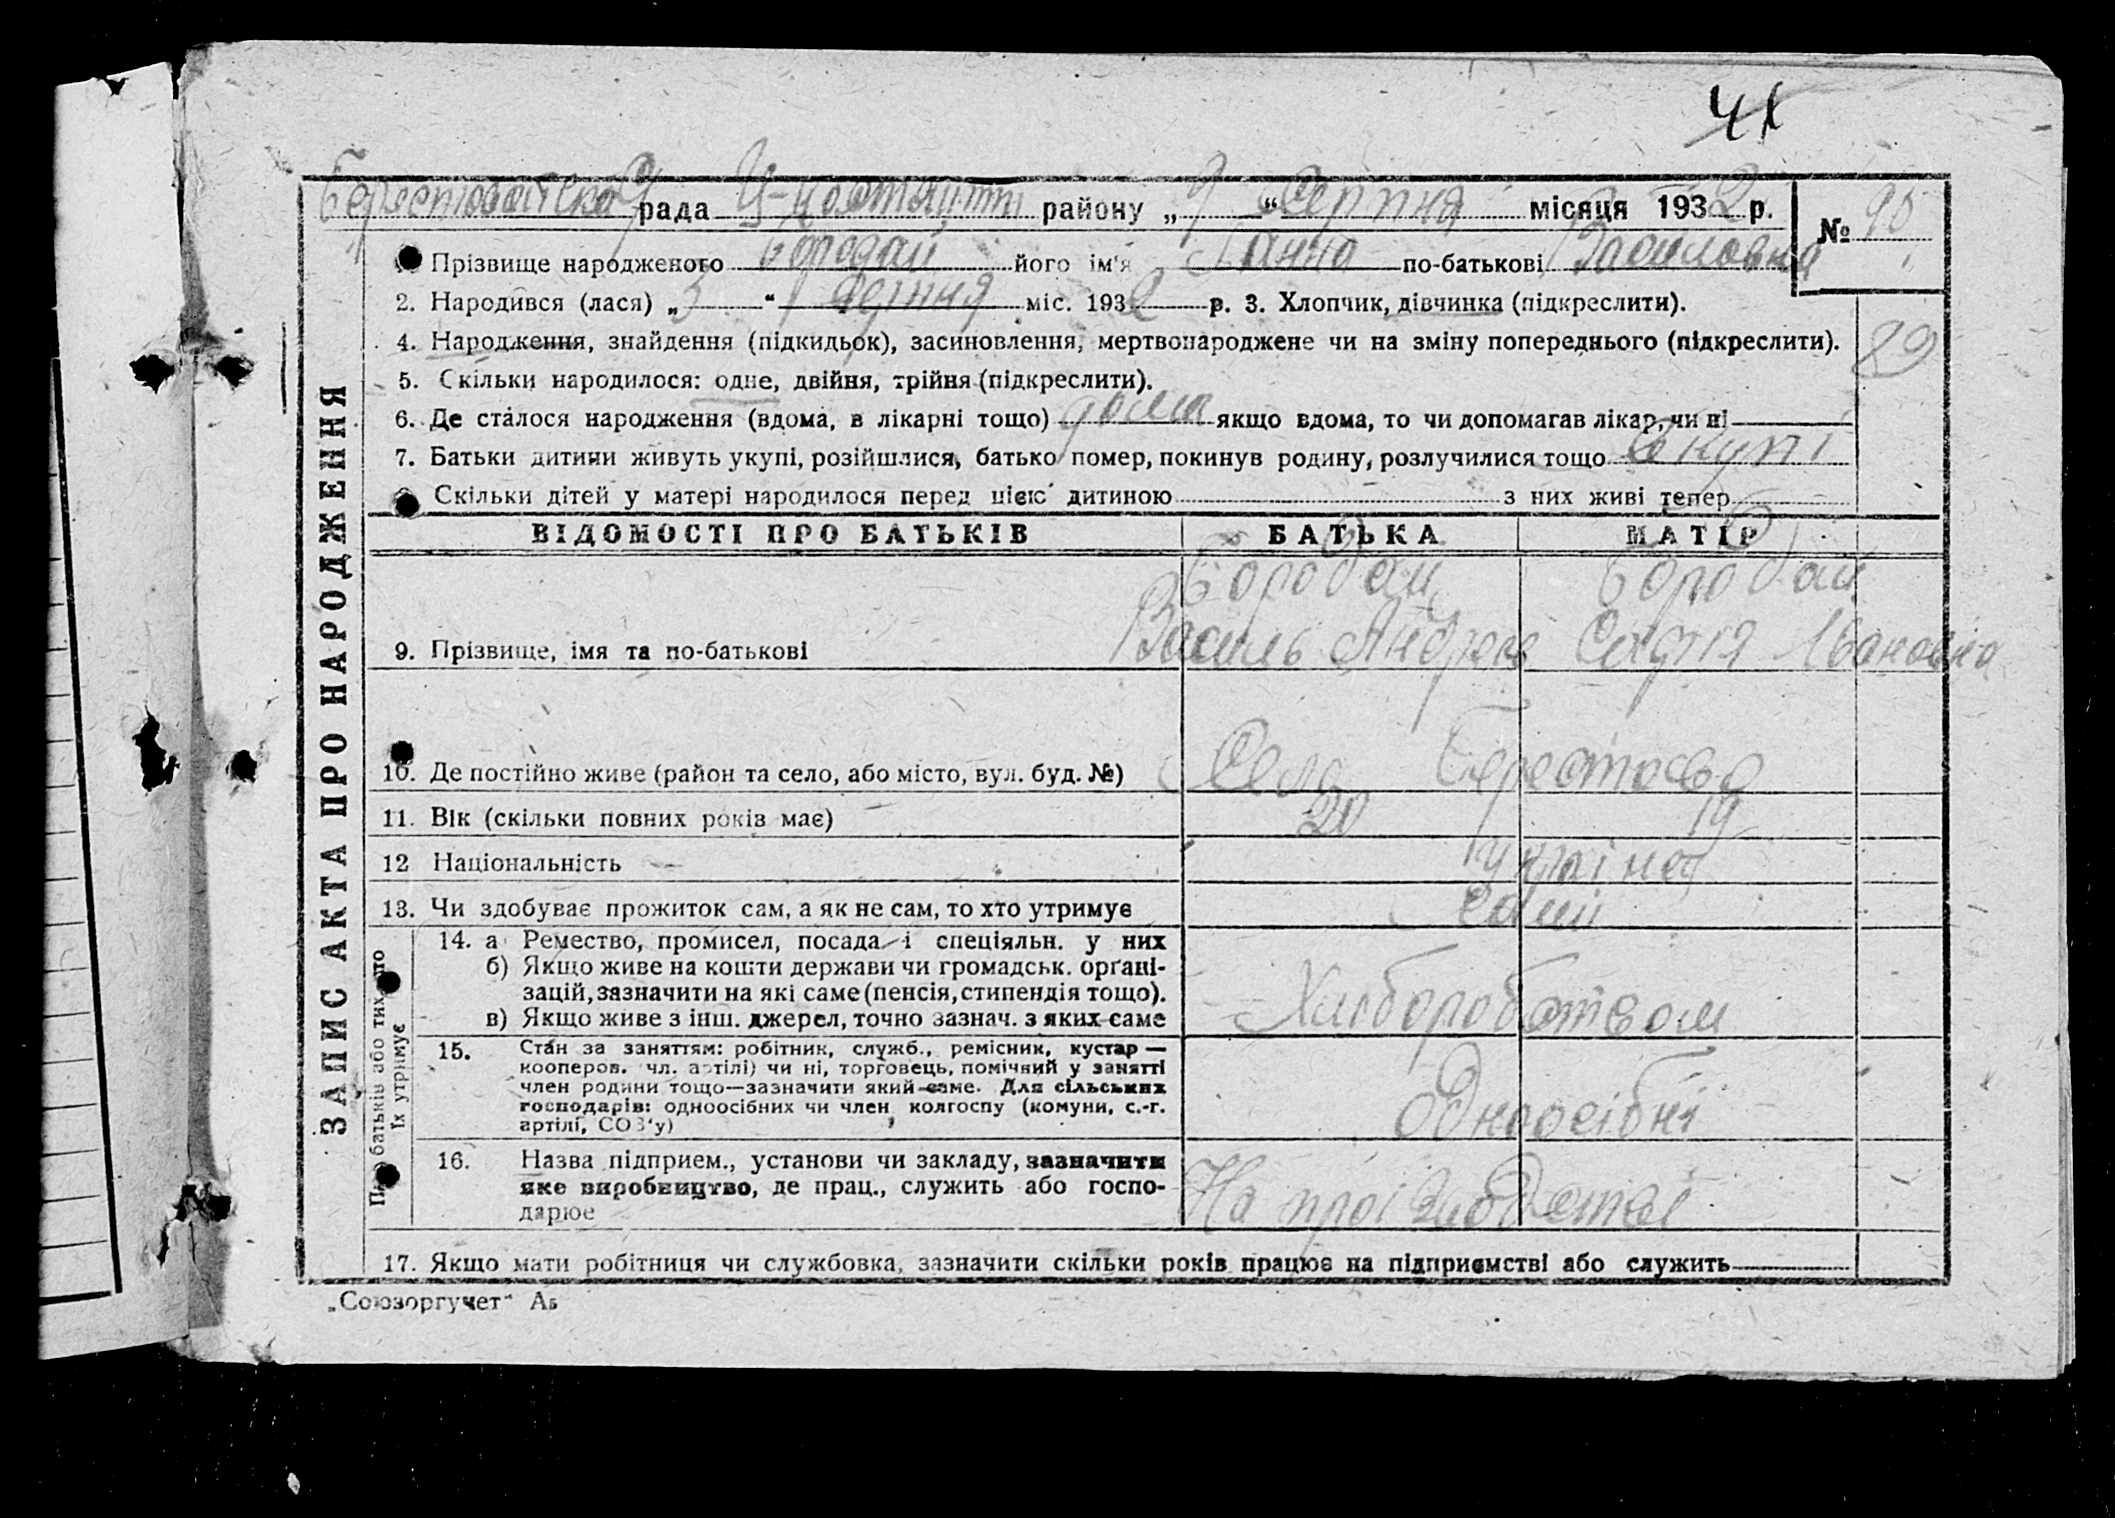 41
Берестовотська рада Ц-Костянтин району „ 9 “ Серпня місяця 1932 р. № 95
Прізвище народженого Бородай його ім'я Ганна по-батькові Василовна
2. Народився (лася) „ 3 “ Серпня міс. 1932 р. 3. Хлопчик, дівчинка (підкреслити).
4. Народження, знайдення (підкидьок), засиновлення, мертвонароджене чи на зміну попереднього (підкреслити). 89
5. Скільки народилося: одне, двійня, трійня (підкреслити).
6. Де сталося народження (вдома, в лікарні тощо) дома якщо вдома, то чи допомагав лікар, чи ні
7. Батьки дитини живуть укупі, розійшлися, батько помер, покинув родину, розлучилися тощо Вкупі
Скільки дітей у матері народилося перед цією дитиною з них живі тепер
ВІДОМОСТІ ПРО БАТЬКІВ БАТЬКА МАТІР
Бородай Бородай
9. Прізвище, імя та по-батькові Василь Андрієв Софія Івановна
10. Де постійно живе (район та село, або місто, вул. буд. №) Село Берестове
11. Вік (скільки повних років має) 20 19
12 Національність
13. Чи здобуває прожиток сам, а як не сам, то хто утримує сами
14. а Ремество, промисел, посада і спеціяльн. у них
б) Якщо живе на кошти держави чи громадськ. орґані-
зацій, зазначити на які саме (пенсія, стипендія тощо).
в) Якщо живе з інш. джерел, точно зазнач. з яких саме
Хліборобством
15. Стан за заняттям: робітник, служб., ремісник, кустар —
кооперов. чл. артілі) чи ні, торговець, помічний у занятті
член родини тощо—зазначити який саме. Для сільських
господарів: одноосібних чи член колгоспу (комуни, с.-г.
артілі, СОЗ'у)
Одноосібні
16. Назва підприєм., установи чи закладу, зазначити
яке виробництво, де прац., служить або госпо-
дарює
17. Якщо мати робітниця чи службовка, зазначити скільки років працює на підприємстві або служить
ЗАПИС АКТА ПРО НАРОДЖЕННЯ
батьків або тих, хто
їх утримує
„Союзоргучет“